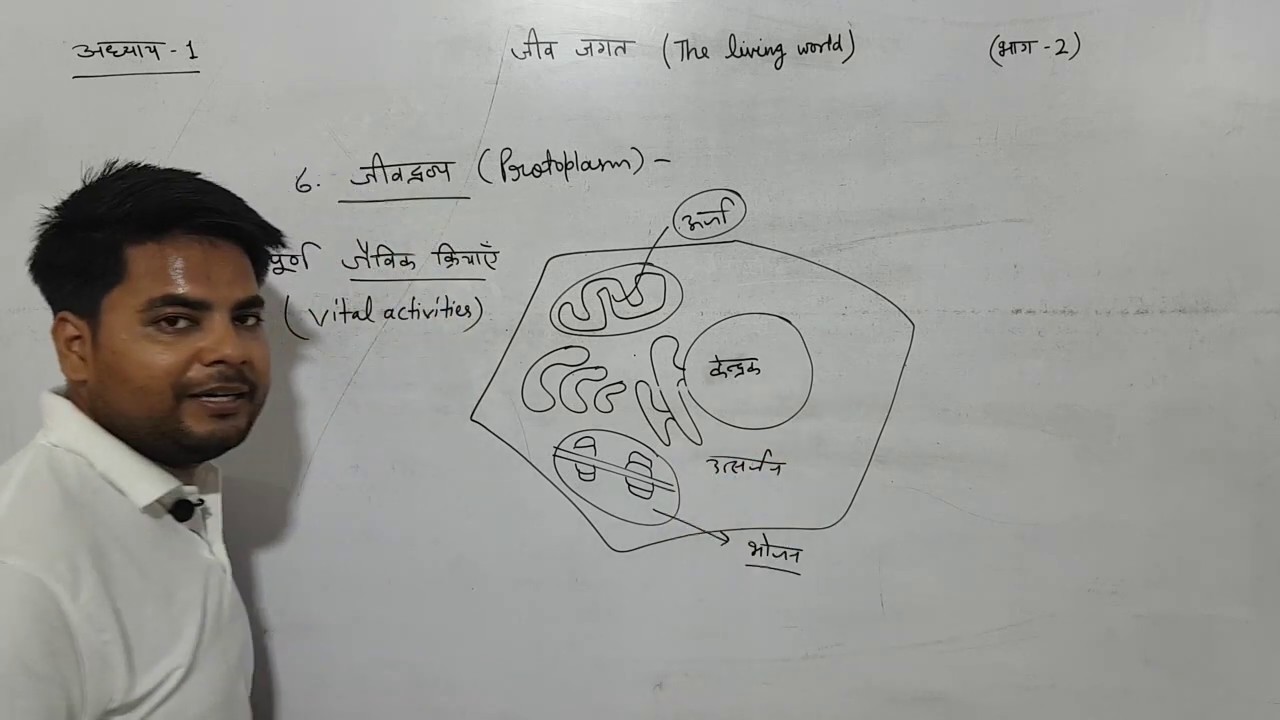 अध्याय - 1
जीव जगत (The living world)
(भाग - 2)
6. जीवद्रव्य (Protoplasm) -
पूर्ण जैविक क्रियाएँ
(vital activities)
ऊर्जा
केन्द्रक
उत्सर्जन
भोजन